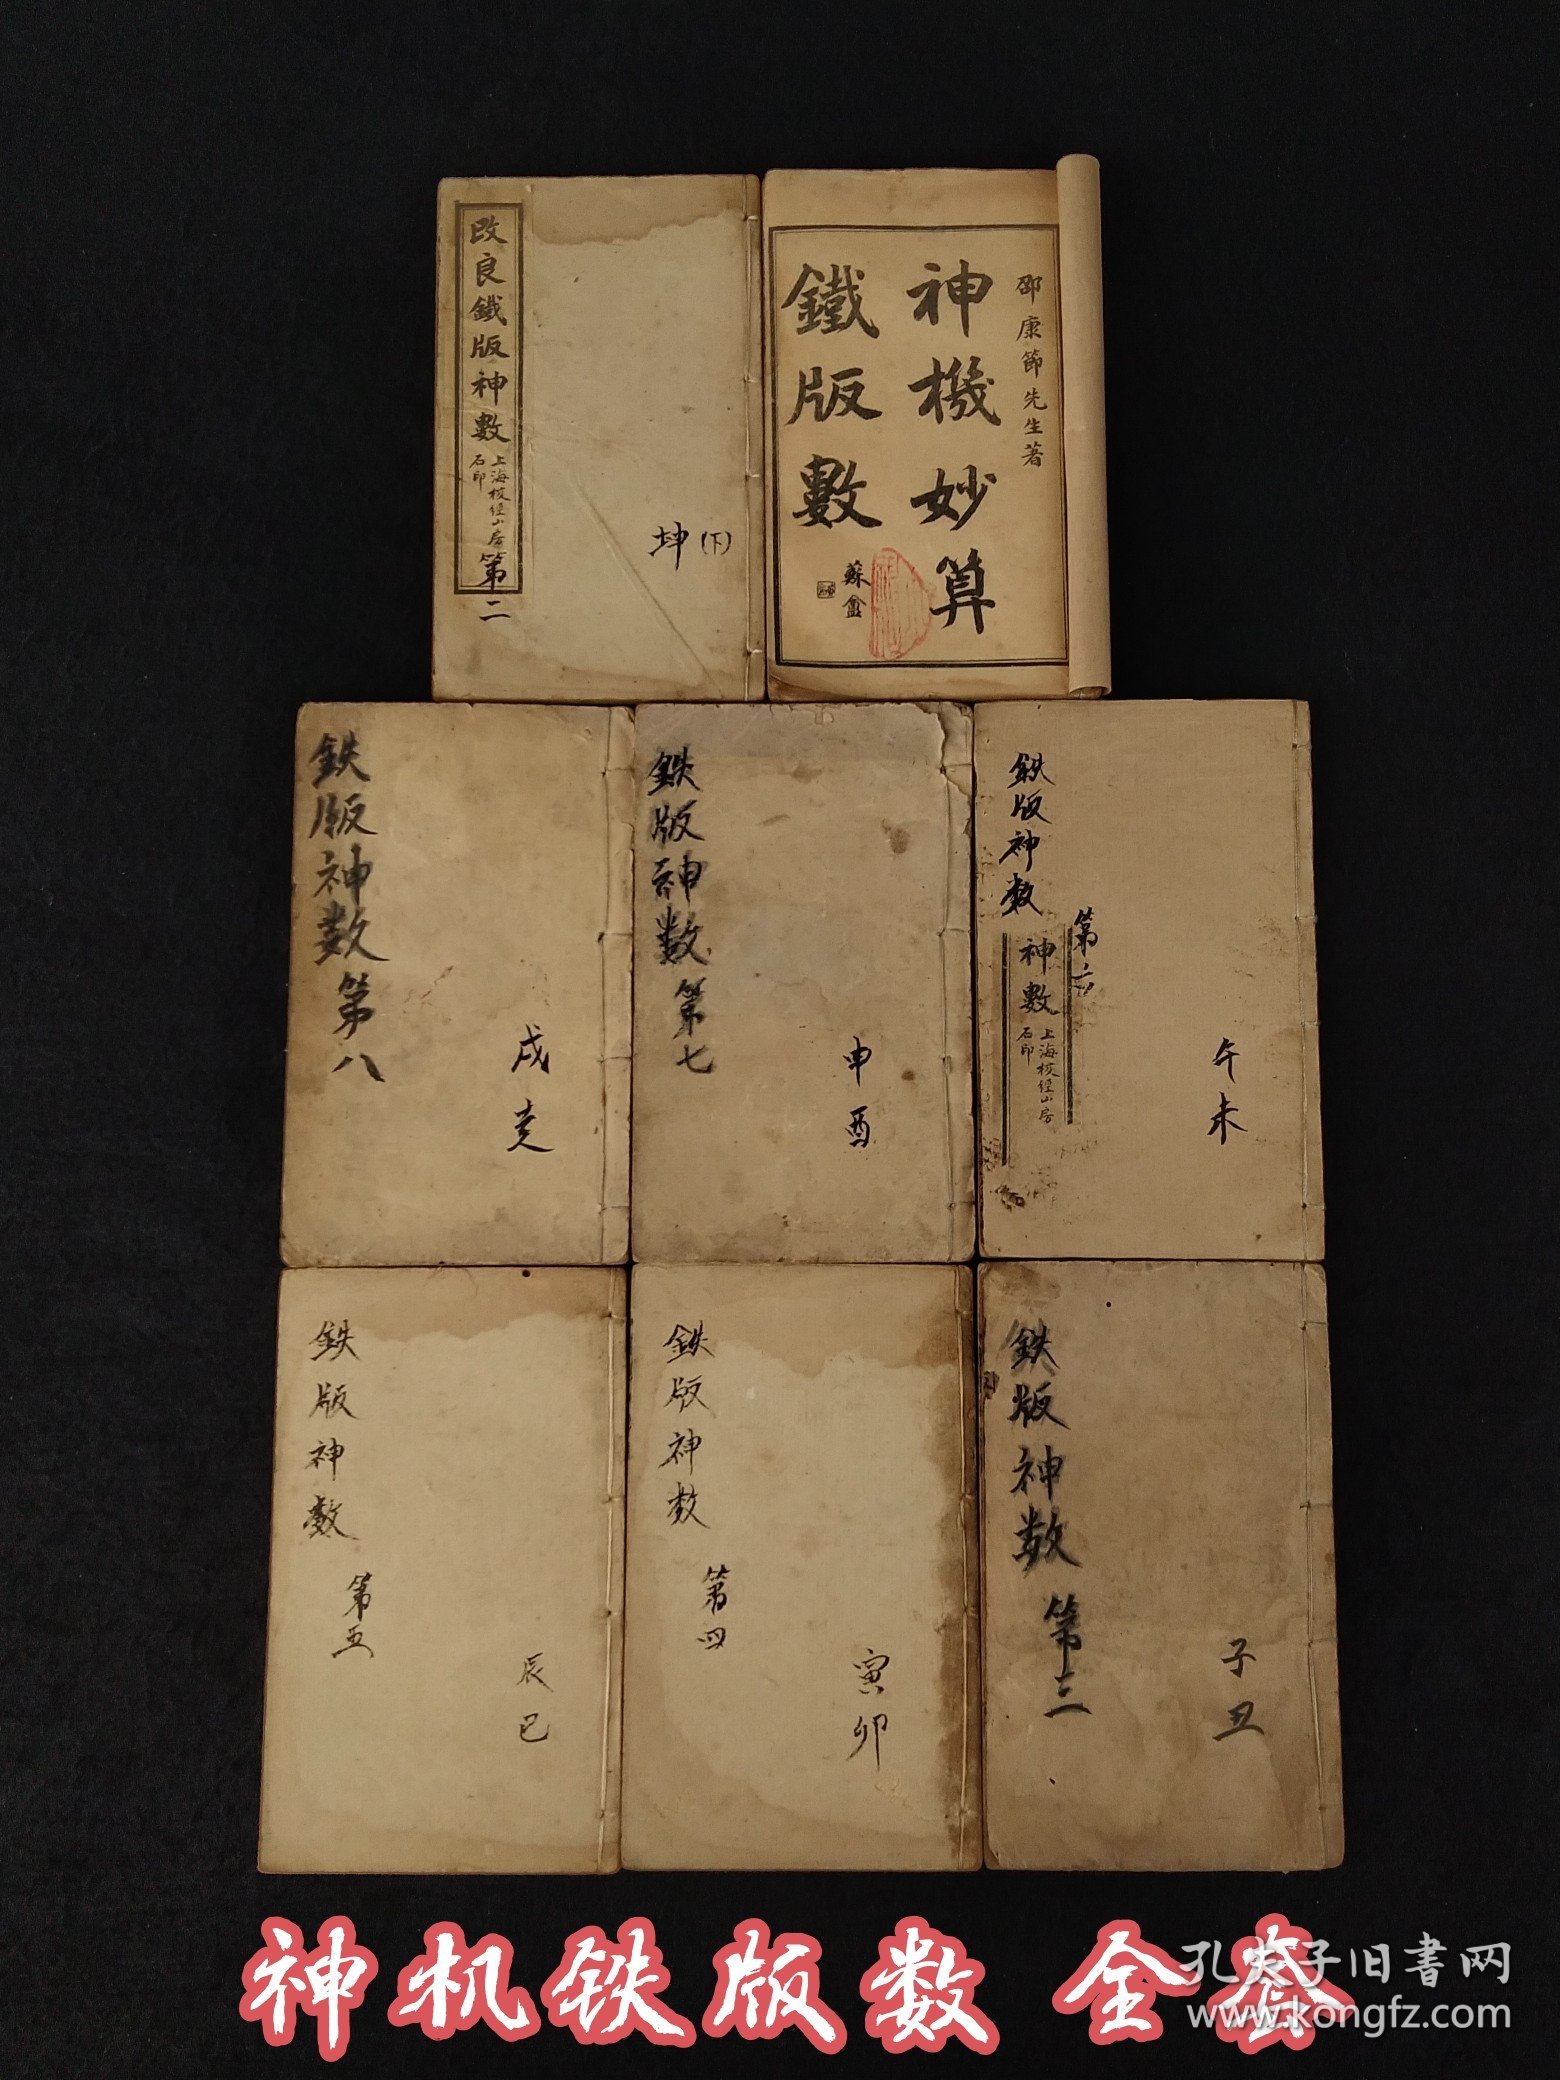 邵康節先生著
神機妙算
鐵版數
蘇盦
改良鐵版神數
上海校經山房
石印
第二
坤(下)
鉄版神数
第六
神數
上海校經山房
石印
午未
鉄版神数第七
申酉
鉄版神数第八
戌亥
鉄版神数
第三
子丑
鉄版神数
第四
寅卯
鉄版神数
第五
辰巳
神机铁版数 全套
孔夫子旧書网
www.kongfz.com